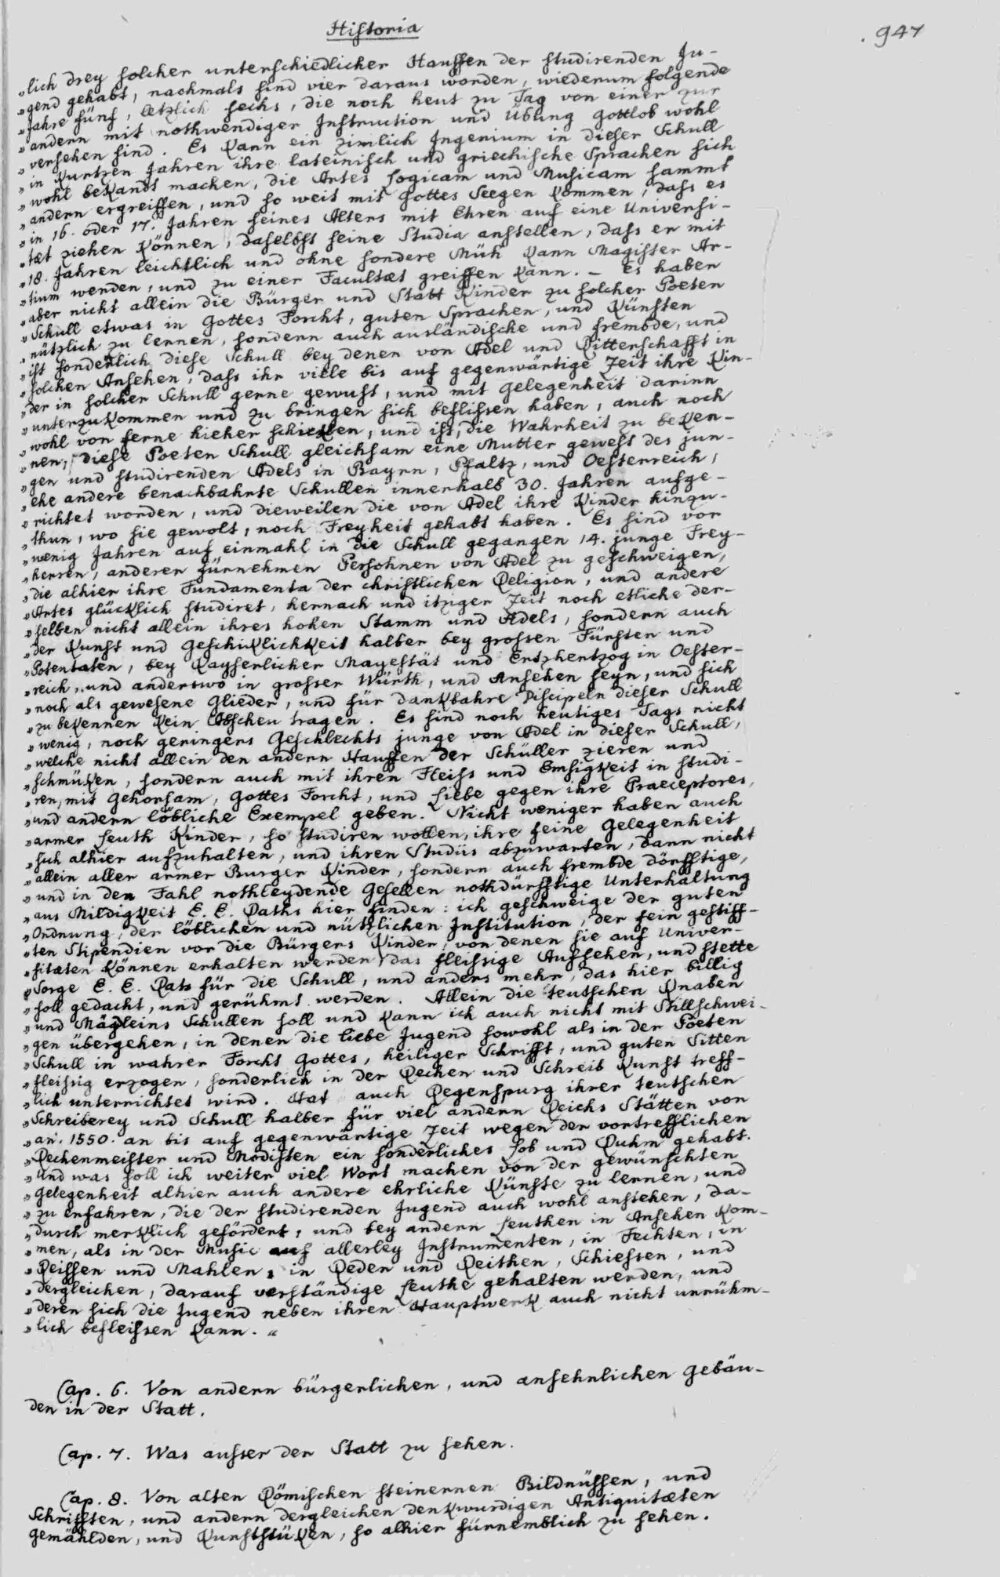 Historia
947
„lich drey solcher unterschiedlicher Hauffen der studirenden Ju-
„gend gehabt, nachmals sind vier daraus worden, wiederum folgende
„Jahre fünf, letzlich sechs, die noch heut zu Tag von einer zur
„andern mit nothwendiger Instruction und Übung Gottlob wohl
„versehen sind. Es kann ein zimlich Ingenium in dieser Schull
„in kurtzen Jahren ihre lateinisch und griechische Sprachen sich
„wohl bekandt machen, die Artes Logicam und Musicam sammt
„andern ergreiffen, und so weit mit Gottes Seegen kommen, dass es
„in 16. oder 17. Jahren seines Alters mit Ehren auf eine Universi-
„tæt ziehen können, daselbst seine Studia anstellen, dass er mit
„18. Jahren leichtlich und ohne sondere Müh kann Magister Ar-
„tium werden, und zu einer Facultæt greiffen kann. – Es haben
„aber nicht allein die Bürger und Statt Kinder zu solcher Poeten
„Schull etwas in Gottes Forcht, guten Sprachen, und Künsten
„nützlich zu lernen, sondern auch ausländische und frembde, und
„ist sonderlich diese Schull bey denen von Adel und Ritterschafft in
„solchen Ansehen, dass ihr viele bis auf gegenwärtige Zeit ihre Kin-
„der in solcher Schull gerne gewust, und mit Gelegenheit darinn
„unterzukommen und zu bringen sich beflissen haben, auch noch
„wohl von ferne hieher schicken, und ist, die Wahrheit zu beken-
„nen, diese Poeten Schull gleichsam eine Mutter gewest des jun-
„gen und studirenden Adels in Bayrn, Pfaltz, und Oesterreich,
„ehe andere benachbahrte Schullen innerhalb 30. Jahren aufge-
„richtet worden, und dieweilen die von Adel ihre Kinder hinzu-
„thun, wo sie gewolt, noch Freyheit gehabt haben. Es sind vor
„wenig Jahren auf einmahl in die Schull gegangen 14. junge Frey-
„herren, anderer fürnehmen Persohnen von Adel zu geschweigen,
„die alhier ihre Fundamenta der christlichen Religion, und andere
„Artes glücklich studiret, hernach und itziger Zeit noch etliche der-
„selben nicht allein ihres hohen Stamm und Adels, sondern auch
„der Kunst und Geschiklichkeit halber bey grossen Fürsten und
„Potentaten, bey Kayserlicher Mayestät und Ertzhertzog in Oester-
„reich, und anderswo in grosser Würth, und Ansehen seyn, und sich
„noch als gewesene Glieder, und für dankbahre Discipeln dieser Schull
„zu bekennen kein Abscheu tragen. Es sind noch heutiges Tags nicht
„wenig, noch geringers Geschlechts junge von Adel in dieser Schull,
„welche nicht allein den andern Hauffen der Schüller zieren und
„schmüken, sondern auch mit ihren Fleiss und Emsigkeit in studi-
„ren, mit Gehorsam, Gottes Forcht, und Liebe gegen ihre Praeceptores,
„und andern löbliche Exempel geben. Nicht weniger haben auch
„armer Leuth Kinder, so studiren wollen, ihre feine Gelegenheit
„sich alhier aufzuhalten, und ihren Studiis abzuwarten, dann nicht
„allein aller armer Burger Kinder, sondern auch frembde dörfftige,
„und in den Fahl nothleydende Gesellen nothdürfftige Unterhaltung
„aus Mildigkeit E. E. Raths hier finden: ich geschweige der guten
„Ordnung, der löblichen und nützlichen Institution, der fein gestiff-
„ten Stipendien vor die Bürgers Kinder, von denen sie auf Univer-
„sitæten können erhalten werden, das fleissige Aufsehen, und stette
„Sorge E. E. Rats für die Schull, und anders mehr, das hier billig
„soll gedacht, und gerühmt werden. Allein die teutschen Knaben
„und Mägdleins Schullen soll und kann ich auch nicht mit Stillschwei-
„gen übergehen, in denen die liebe Jugend sowohl als in der Poeten
„Schull in wahrer Forcht Gottes, heiliger Schrifft, und guten Sitten
„fleissig erzogen, sonderlich in der Rechen und Schreib Kunst treff-
„lich unterrichtet wird. Hat auch Regenspurg ihrer teutschen
„Schreiberey und Schull halber für viel andern Reichs Stätten von
„an. 1550. an bis auf gegenwärtige Zeit wegen der vortrefflichen
„Rechenmeister und Modisten ein sonderliches Lob und Ruhm gehabt.
„Und was soll ich weiter viel Wort machen von der gewünschten
„Gelegenheit alhier auch andere ehrliche Künste zu lernen, und
„zu erfahren, die der studirenden Jugend auch wohl anstehen, da-
„durch merklich gefördert, und bey andern Leuthen in Ansehen kom-
„men, als in der Music auf allerley Instrumenten, in Fechten, in
„Reissen und Mahlen, in Reden und Reithen, Schiessen, und
„dergleichen, darauf verständige Leuthe gehalten werden, und
„deren sich die Jugend neben ihren Hauptwerk auch nicht unrühm-
„lich befleissen kann. "
Cap. 6. Von andern bürgerlichen, und ansehnlichen Gebäu-
den in der Statt.
Cap. 7. Was ausser der Statt zu sehen.
Cap. 8. Von alten Römischen steinernen Bildnüssen, und
Schrifften, und andern dergleichen denkwurdigen Antiquitæten
Gemählden, und Kunststüken, so alhier fürnemblich zu sehen.